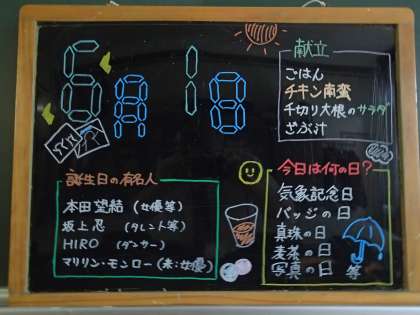 6月1日
献立
ごはん
チキン南蛮
千切り大根のサラダ
ざぶ汁
誕生日の有名人
本田望結(女優等)
坂上忍(タレント等)
HIRO(ダンサー)
マリリン・モンロー(米:女優)
今日は何の日?
気象記念日
バッジの日
真珠の日
麦茶の日
写真の日 等